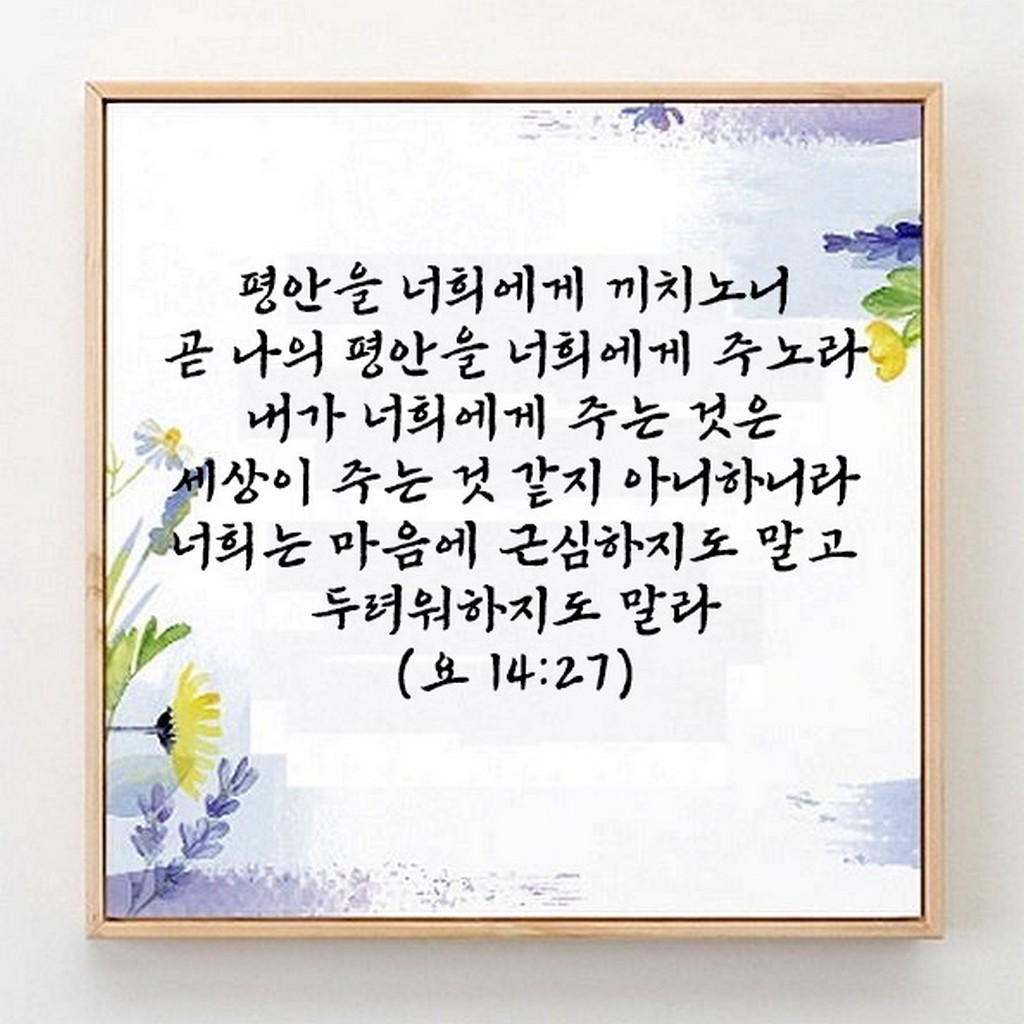 평안을 너희에게 끼치노니
곧 나의 평안을 너희에게 주노라
내가 너희에게 주는 것은
세상이 주는 것 같지 아니하니라
너희는 마음에 근심하지도 말고
두려워하지도 말라
(요 14:27)